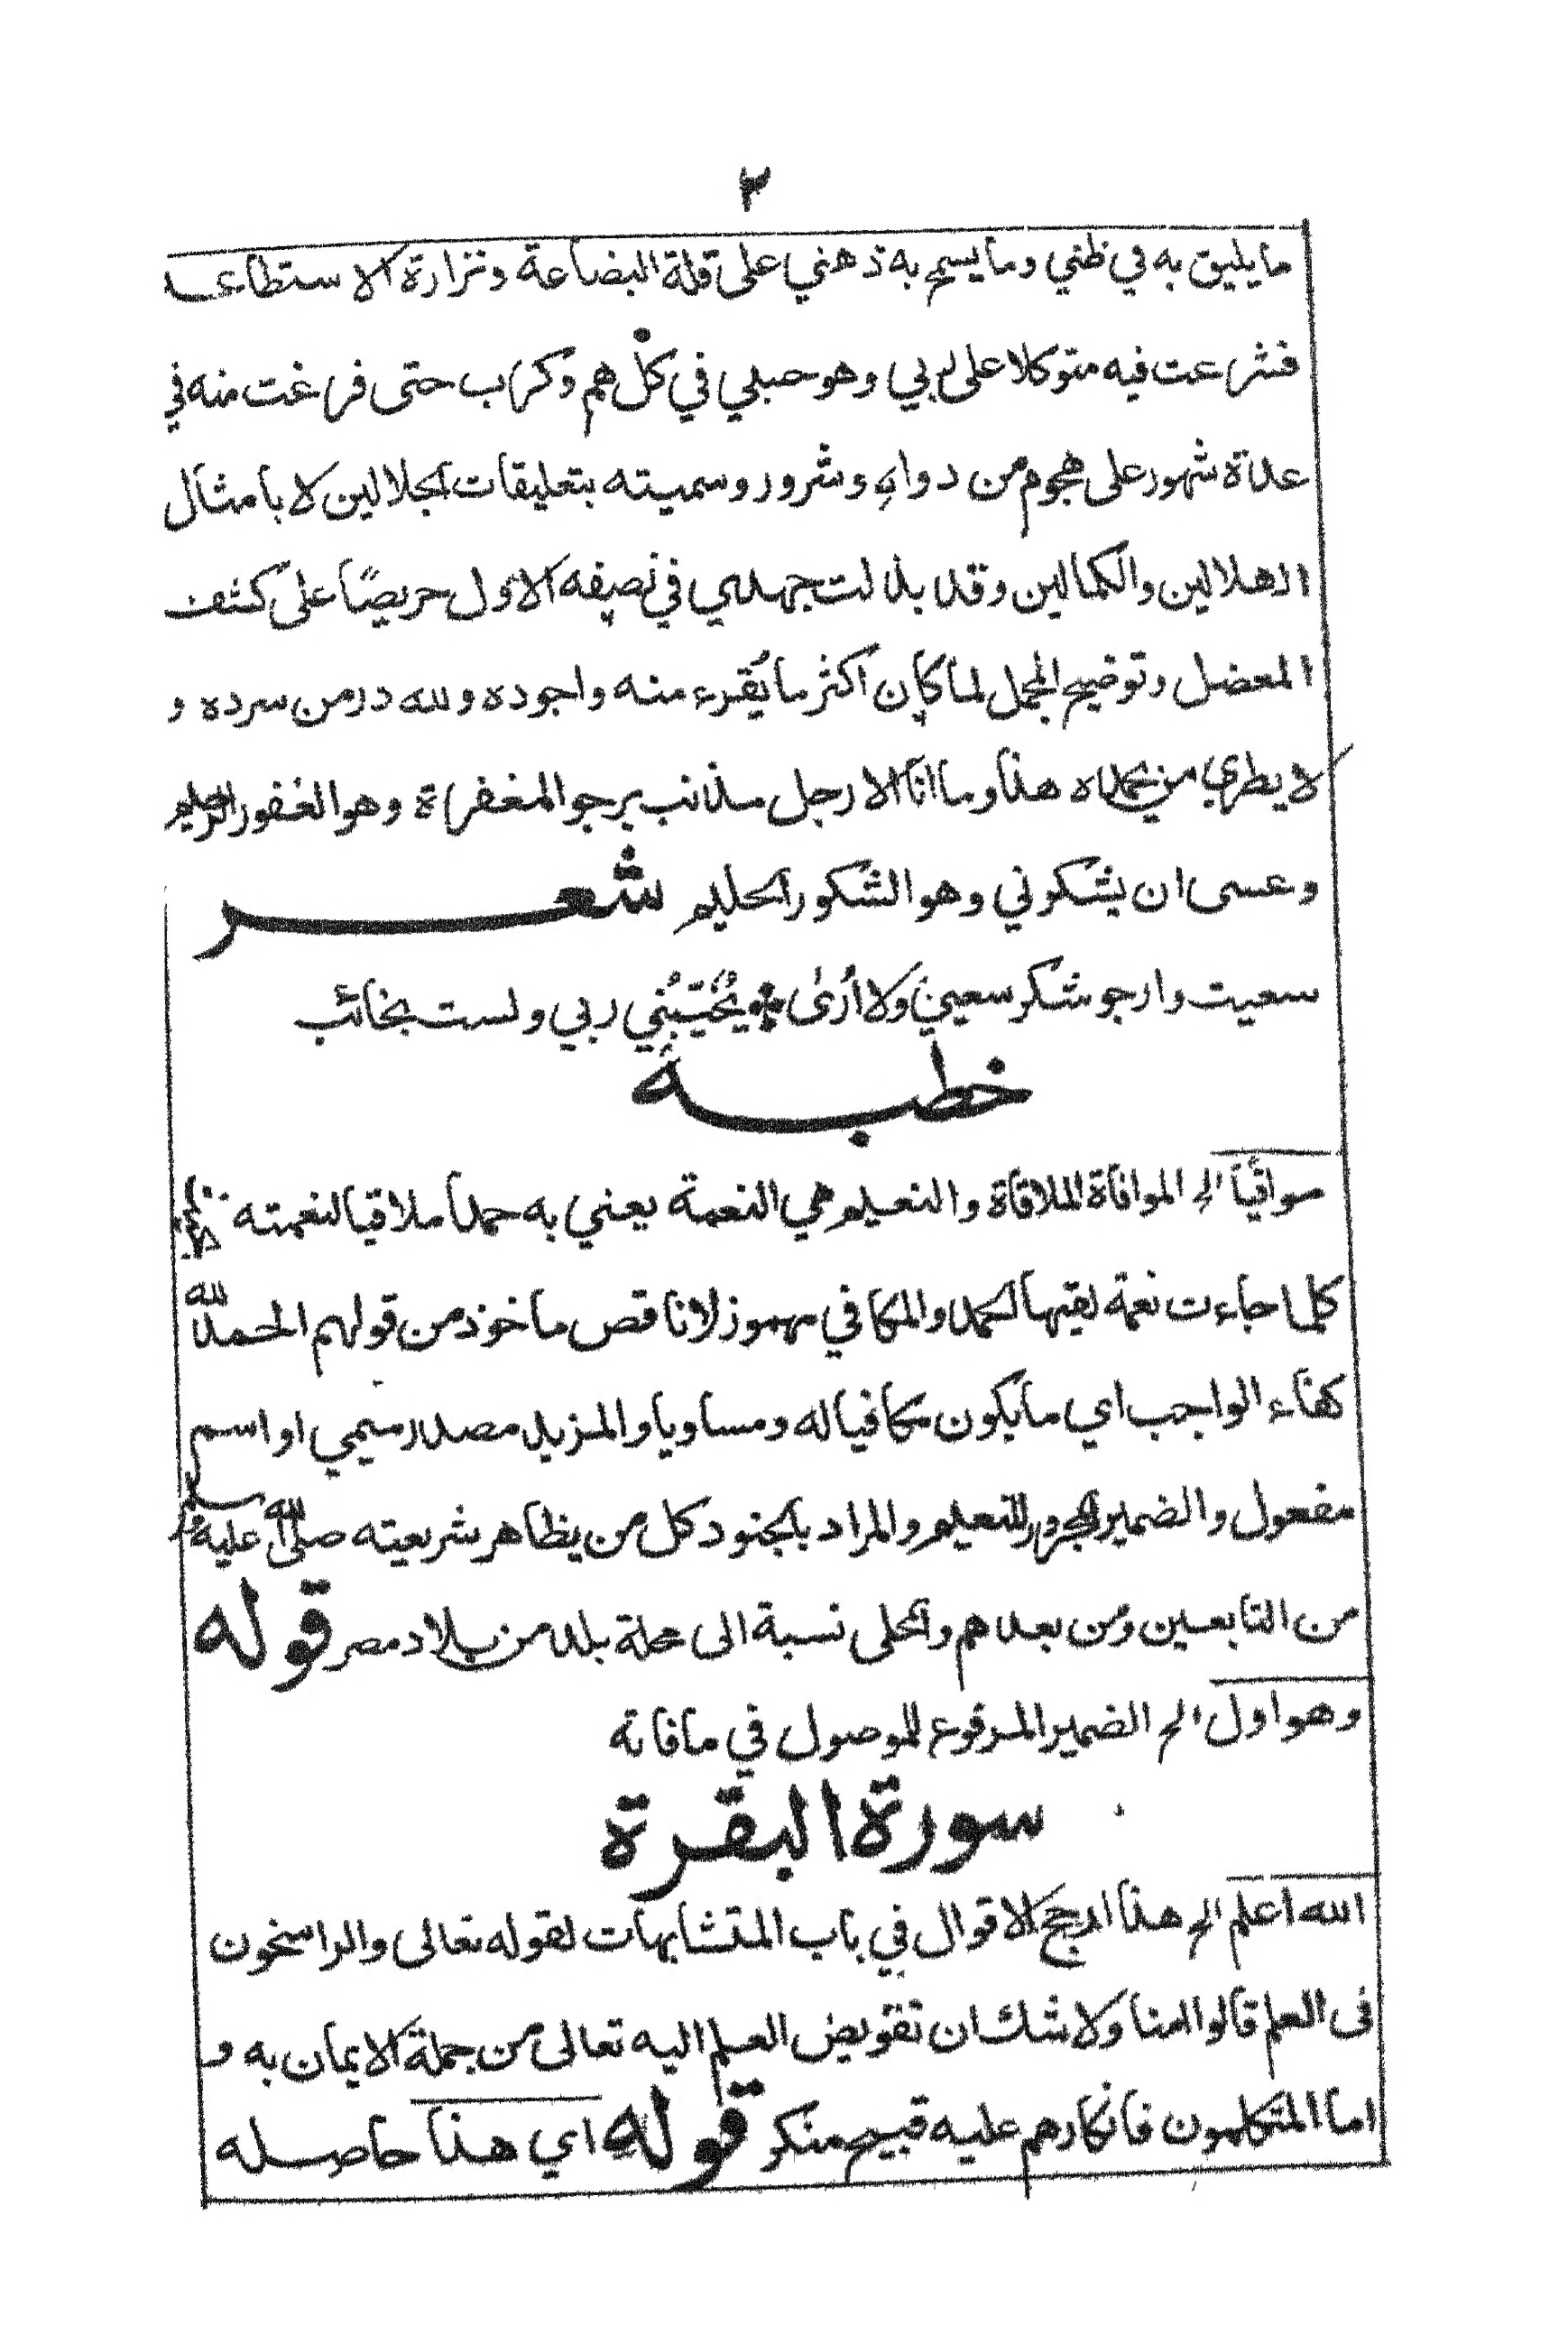 ٢
ما يليق به في ظني وما يسمح به ذهني على قلة البضاعة ونزارة الاستطاعـ
فشرعت فيه متوكلا على ربي وهو حسبي في كل هم وكرب حتى فرغت منه في
عدة شهور على هجوم من دواهٍ وشرور وسميته بتعليقات الجلالين لا بامثال
الهلالين والكمالين وقد بذلت جهدي في نصفه الاول حريصًا على كشف
المعضل وتوضيح المجمل لما كان اكثر ما يُقرء منه واجوده ولله در من سرده و
لا يطري من يحمده هذا وما انا الا رجل مذنب يرجو المغفرة وهو الغفور الرحيم
وعسى ان يشكرني وهو الشكور الحليم شعـــر
سعيت وارجو شكر سعيي ولا اُرىٰ ❊ يُخَيّبُني ربي ولست بخائب
خطبـــة
موافيًا الخ الموافاة الملاقاة والنعيم هي النعمة يعني به حمدا ملاقيا لنعمته
كلما جاءت نعمة لقيها الحمد والمكافي مهموز لا ناقص ماخوذ من قولهم الحمد لله
كفاء الواجب اي ما يكون مكافيا له ومساويا والمزيد مصدر ميمي او اسم
مفعول والضمير المجرور للنعيم والمراد بالجنود كل من يظاهر شريعته صلى الله عليه وسلم
من التابعين ومن بعدهم والمحلى نسبة الى محلة بلد من بلاد مصر قوله
وهو اول الخ الضمير المرفوع للموصول في ما فاته
سورة البقرة
الله اعلم الخ هذا ارجح الاقوال في باب المتشابهات لقوله تعالى والراسخون
فى العلم قالوا امنا ولا شك ان تفويض العلم اليه تعالى من جملة الايمان به و
اما المتكلمون فانكارهم عليه قبيح منكر قوله اي هذا حاصله